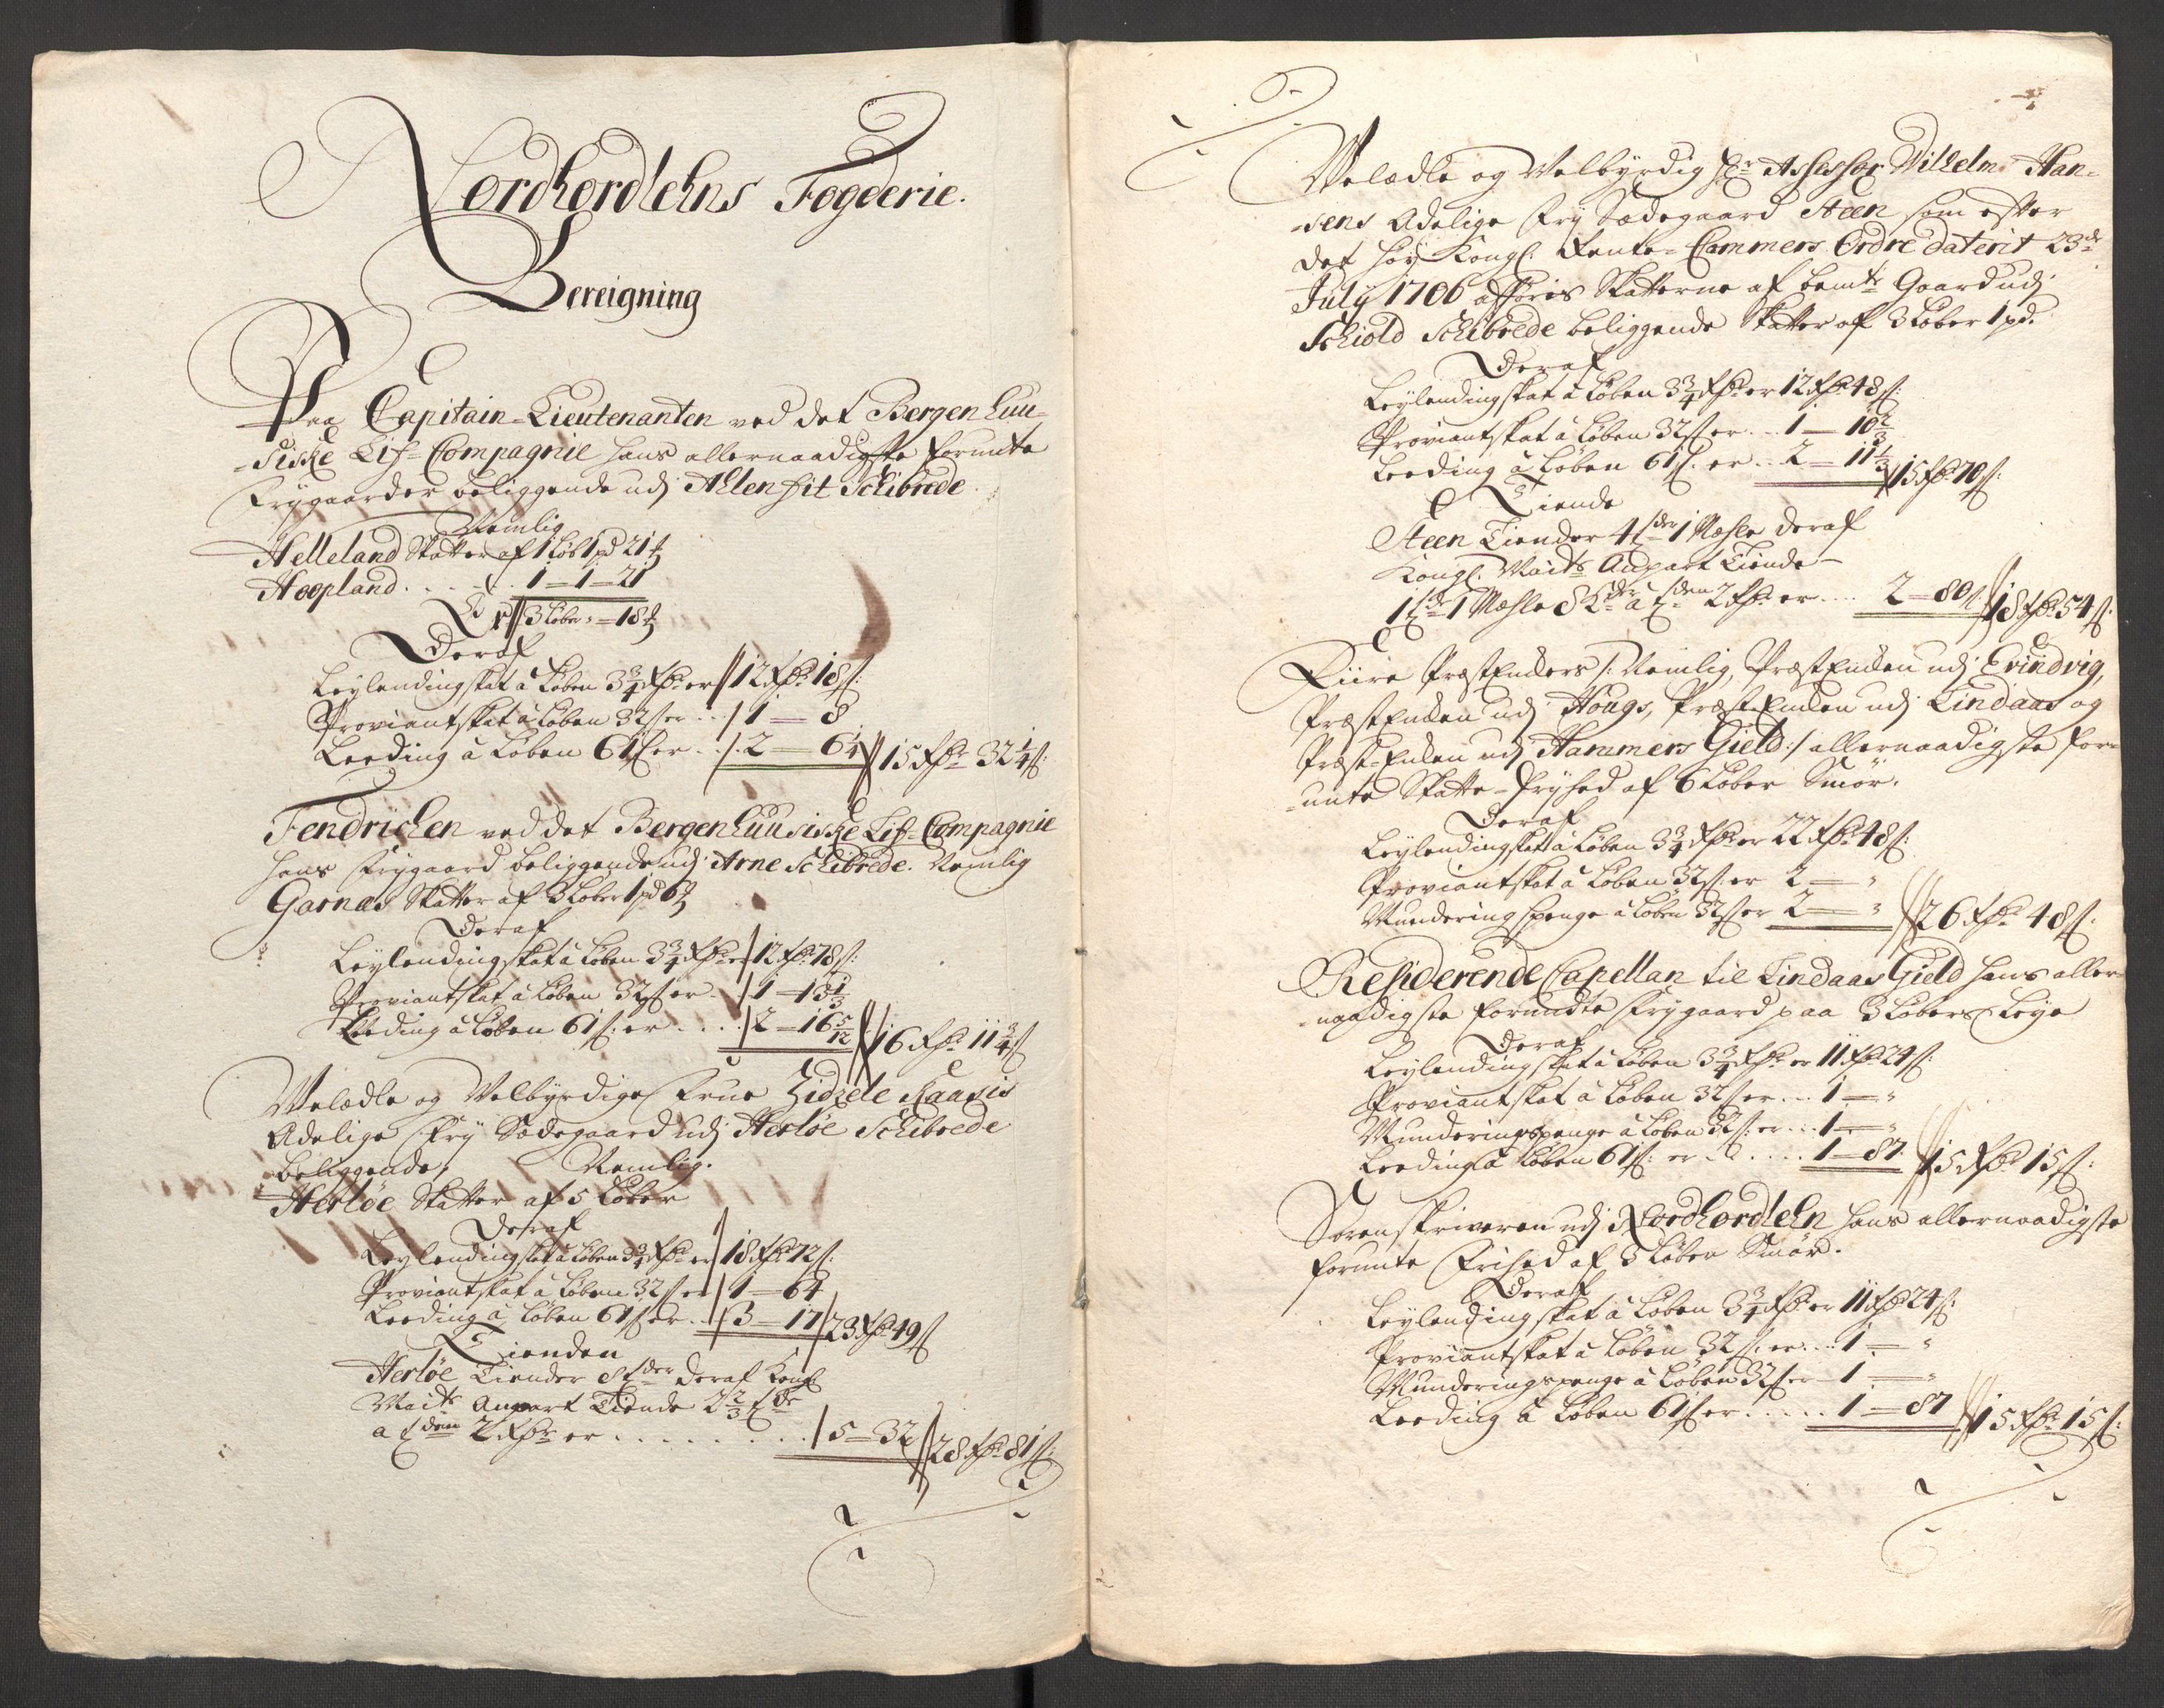 Nordhordlehns Fogderie.
Bereigning
Paa Capitain-Lieutenanten ved det Bergenhuu-
-siske Lif-Compagnie hans allernaadigste forunte
Frygaarder beliggende udj Allenfit Schibrede.
Nemlig
Helleland Skatter af 1 Løb 1 pd 21 ℔
Hoepland . . . . . . 1 – 1 – 21
Er 3 Løber : – 18 ℔
Deraf
Leylendingskat â Løben 3¾ Rdr er 12 Rdr 18 s:
Proviantskat â Løben 32 s er . . 1 – 8
Leeding â Løben 61 s er . . 2 – 6¼ 15 Rdr 32¼ s:
Fendrichen ved det Bergenhuusiske Lif-Compagnie
hans Frygaard beliggende udj Arne Schibrede. Nemlig
Garnæs Skatter af 3 Løber 1 pd 6 ℔
Deraf
Leylendingskat â Løben 3¾ Rdr er 12 Rdr 78 s:
Proviantskat â Løben 32 s er . . 1 – 13⅓
Leeding â Løben 61 s: er . . . . 2 – 16 5/12 16 Rdr 11¾ s
Velædle og Velbyrdige Frue Zidzele Kaasis
Adelige Fry Sædegaard udj Herløe Schibrede
beliggende, Nemlig.
Herløe Skatter af 5 Løber
Deraf
Leylendingskat â Løben 3¾ Rdr er 18 Rdr 72 s:
Proviantskat â Løben 32 s er 1 – 64
Leeding â Løben 61 s er . . 3 – 17 23 Rdr 49 s
Tienden
Herløe Tiender 8 tdr deraf Kongl
Maits Anpart Tiende 2⅔ tdr
a tden 2 Rdr er . . . . . . . . 5 – 32 28 Rdr 81 s:
Velædle og Velbyrdig Hr Assessor Vilhelm Han-
-sens Adelige Fry Sædegaard Steen som efter
det høy Kongl. Rente-Cammers Ordre daterit 23de
July 1706 afføris Skatterne af bemte Gaard udj
Schiold Schibrede beliggende Skatter af 3 Løber 1 pd.
Deraf
Leylendingskat â Løben 3¾ Rdr er 12 Rdr 48 s:
Proviantskat â Løben 32 s er . . 1 – 10⅔
Leeding â Løben 61 s. er . . 2 – 11⅓ 15 Rdr 70 s:
Tiende
Steen Tiender 4 tdr 1 Mæhle deraf
Kongl. Maits Anpart Tiende –
1 tdr 1 Mæhle 8 a tden 2 Rdr er . . . . 2 – 80 18 Rdr 54 s:
Fiire Præstenders /: Nemlig, Præstenden udj Evindvig,
Præstenden udj Hougs, Præst-Enden udj Lindaas og
Præst-Enden udj Hammers Gield :/ allernaadigste for-
-unte Skatte-Fryhed af 6 Løber Smør.
Deraf
Leylendingskat â Løben 3¾ Rdr er 22 Rdr 48 s:
Proviantskat â Løben 32 s: er 2 – "
Munderingspenge â Løben 32 s er 2 – " 26 Rdr 48 s:
Residerende Capellan til Lindaas Gield hans aller-
-naadigste forundte Frygaard paa 3 Løbers Leye
Deraf
Leylendingskat â Løben 3¾ Rdr er 11 Rdr 24 s:
Proviantskat â Løben 32 s er . . . 1 – "
Munderingspenge â Løben 32 s: er . . . 1 – "
Leeding â Løben 61 s: er . . . . . 1 – 87 15 Rdr 15 s:
Sorenskriveren udj Nordhordlehn hans allernaadigste
forunte Frihed af 3 Løben Smør.
Deraf
Leylendingskat â Løben 3¾ Rdr er 11 Rdr 24 s:
Proviantskat â Løben 32 s. er . . . 1 – "
Munderingspenge â Løben 32 s er – 1 – "
Leeding â Løben 61 s er . . . . . 1 – 87 15 Rdr 15 s: